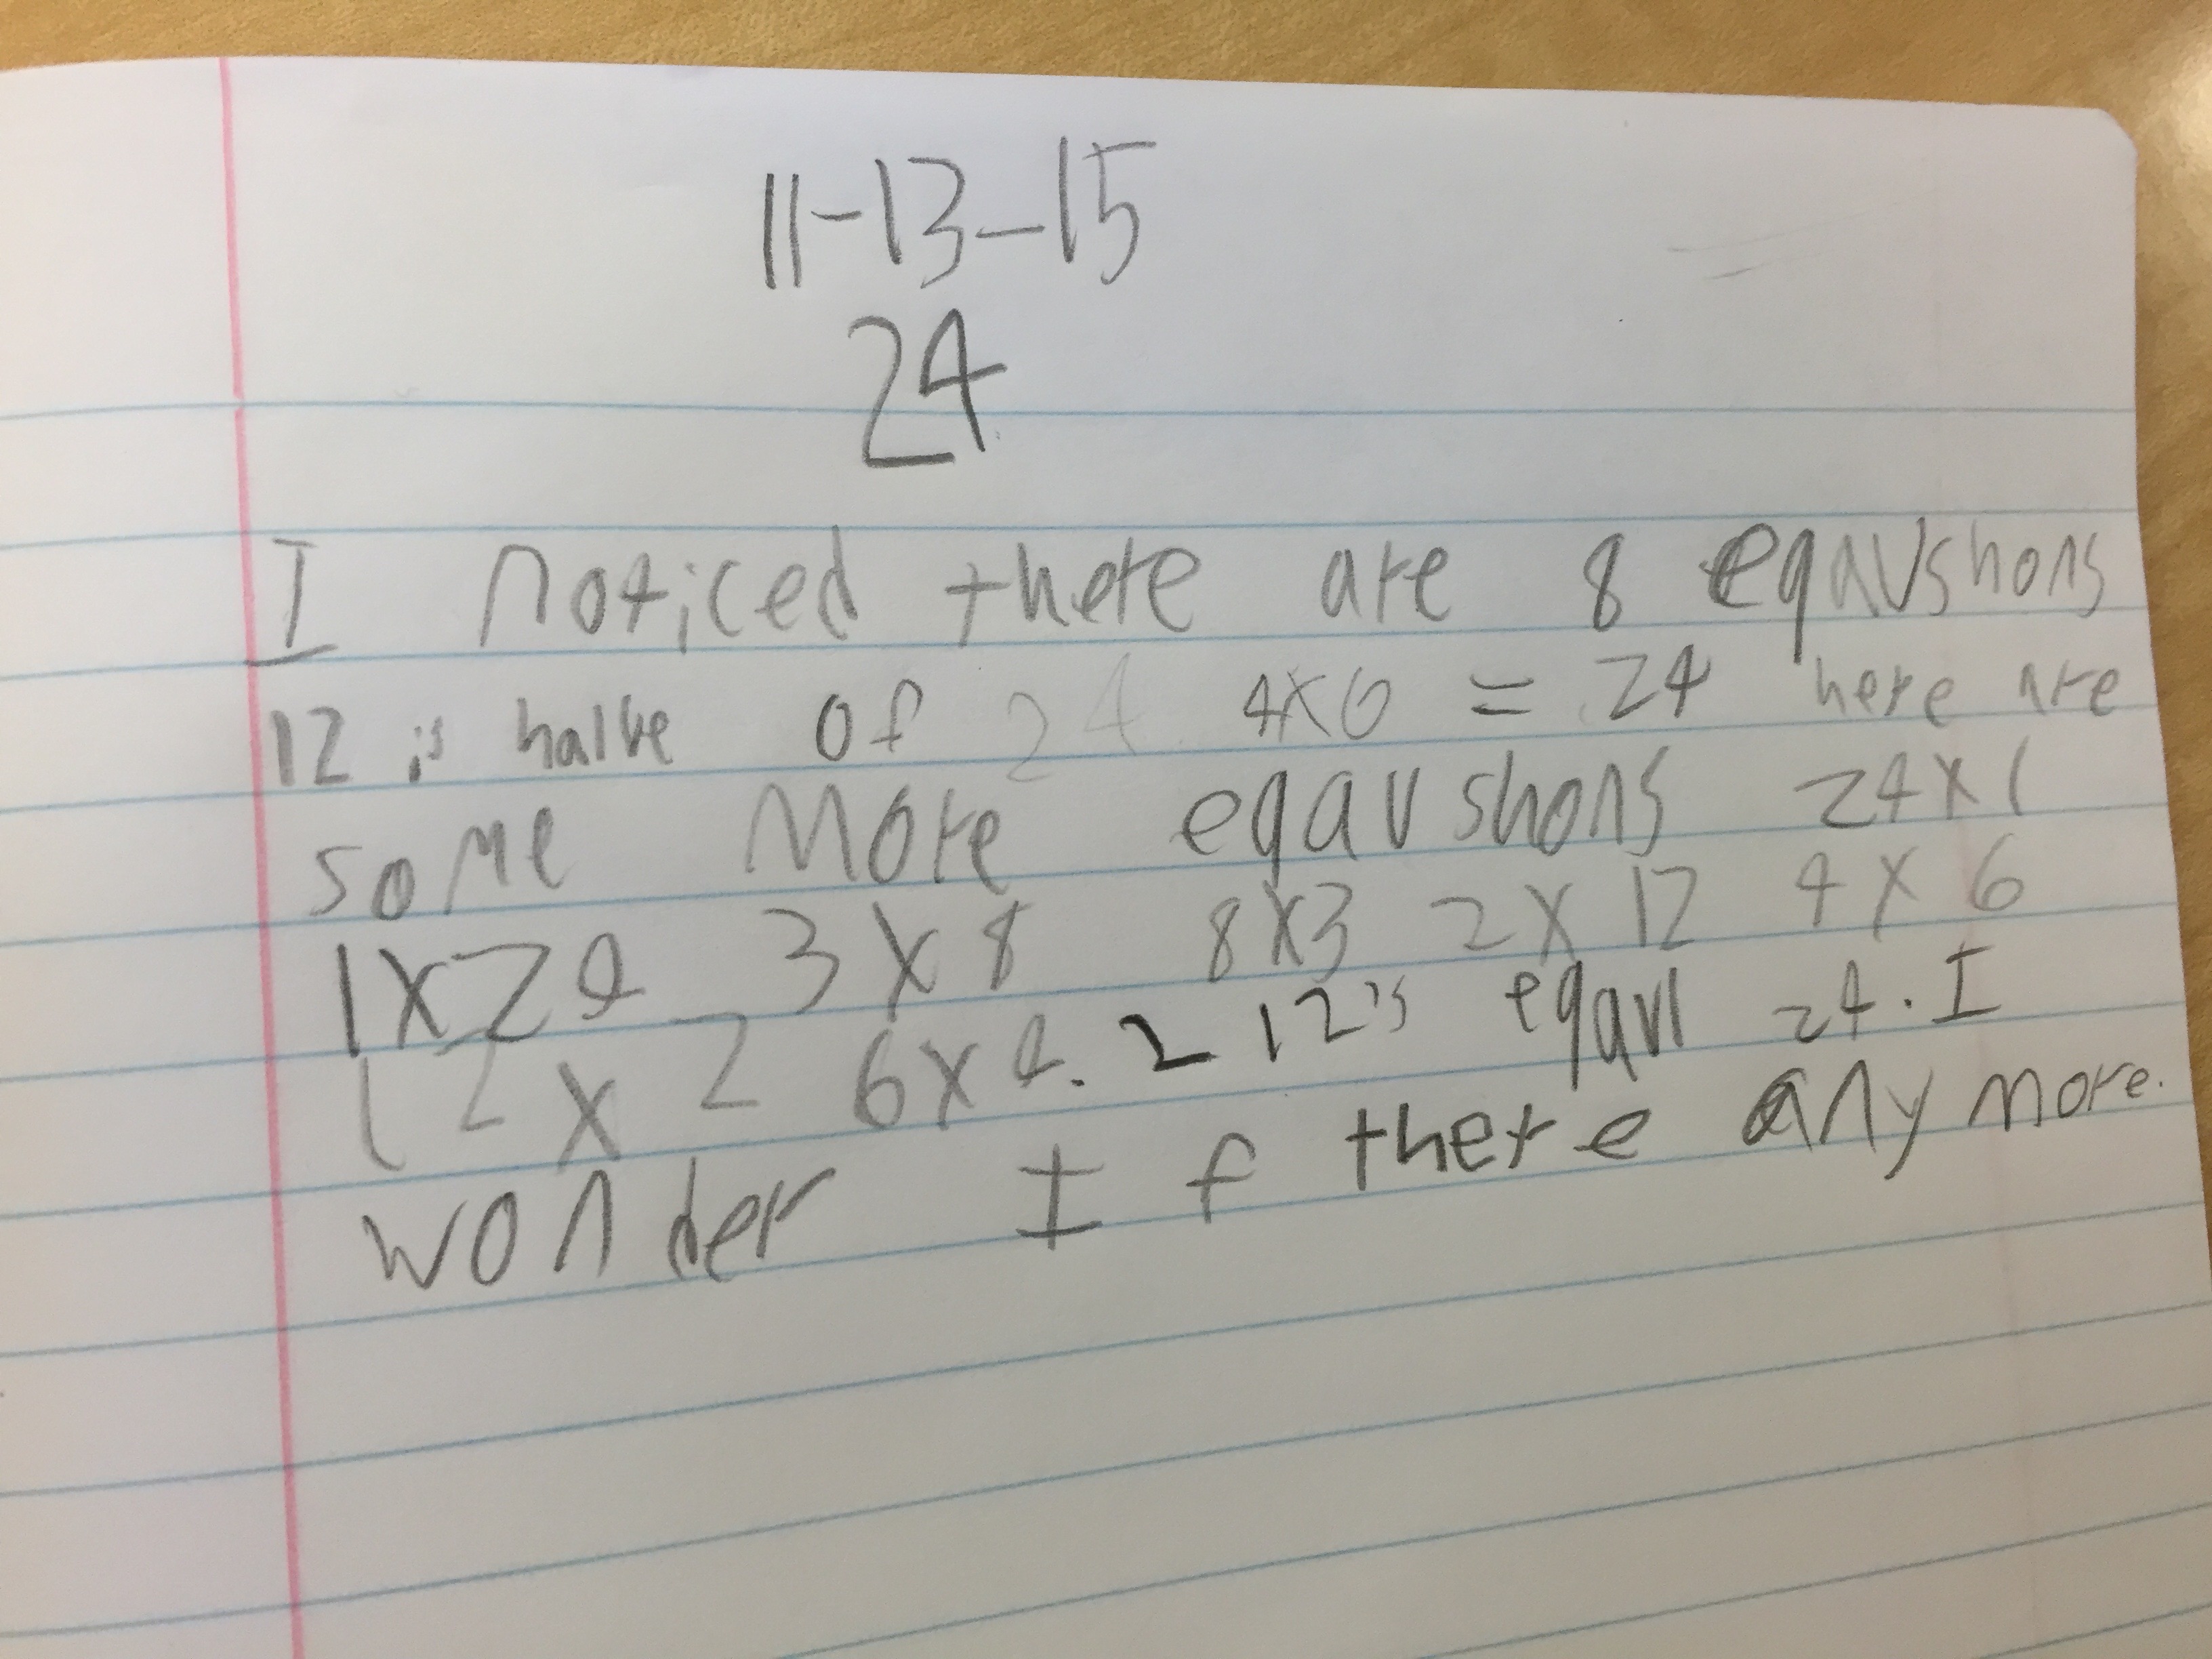 11-13-15
24
I noticed there are 8 eqaushons
12 is halve of 24 4x6 = 24 here are
some More eqaushons 24x1
1x24 3x8 8x3 2x12 4x6
12x2 6x4. 2 12's eqaul 24. I
wonder If there any more.